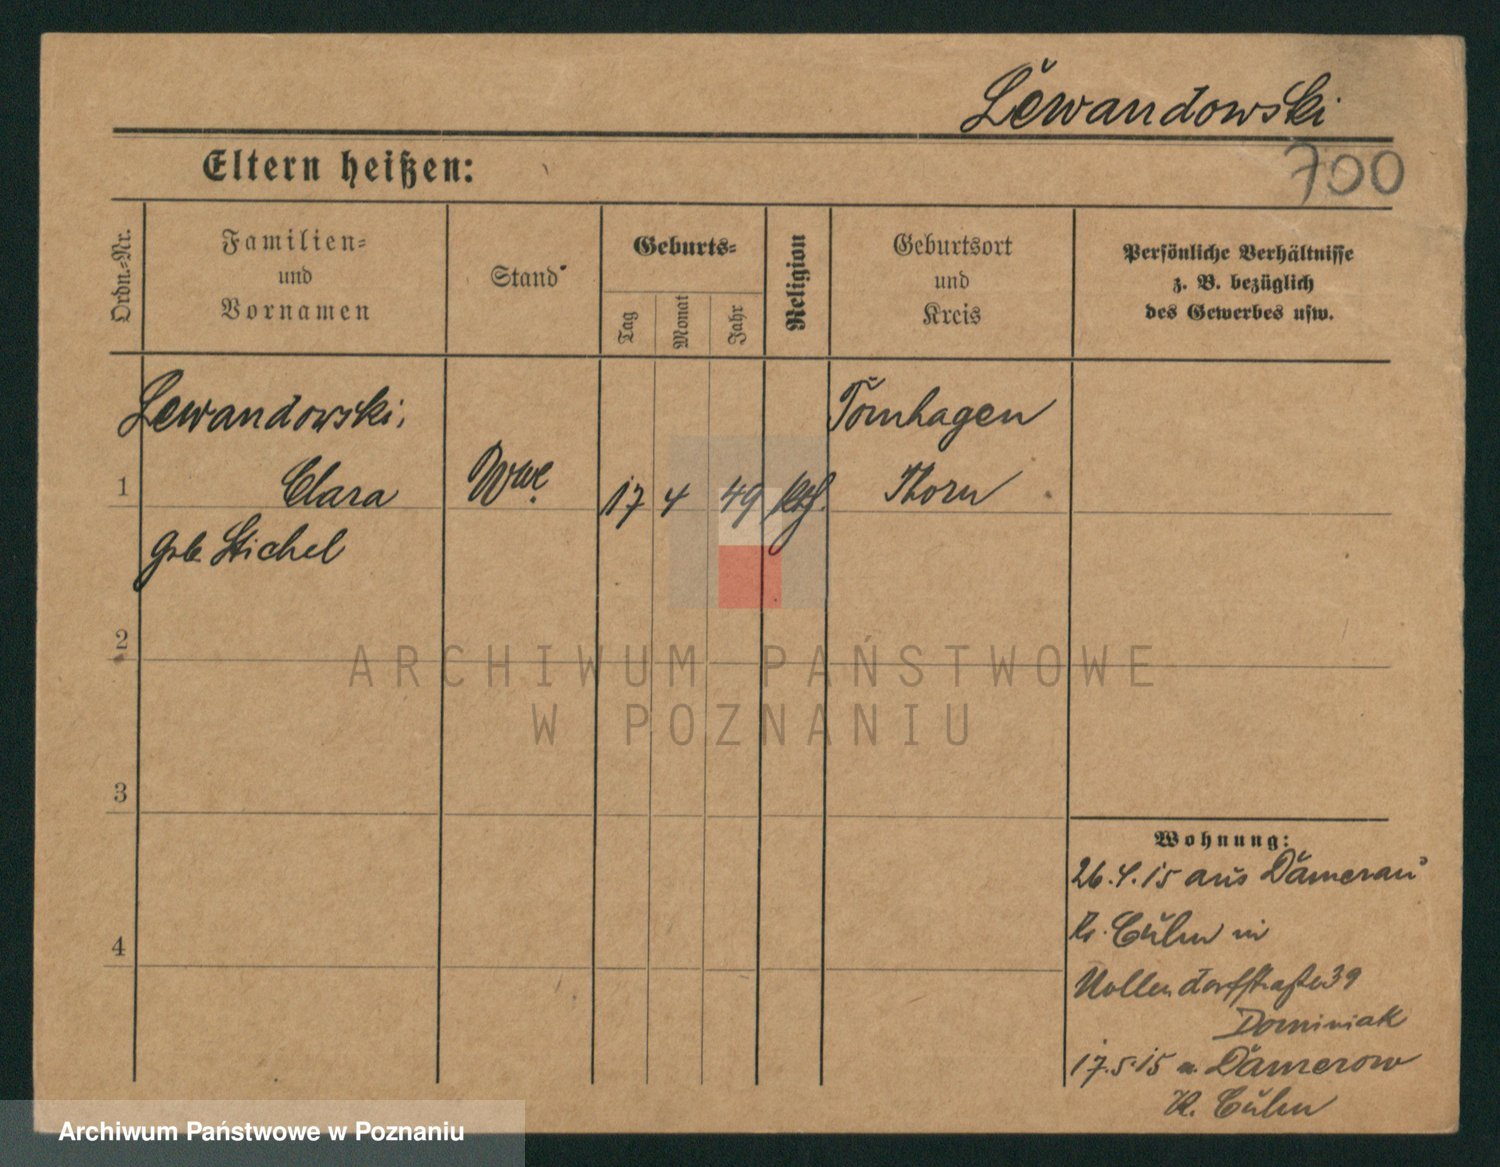 Lewandowski
700
Eltern heißen:
Ordn.=Nr.
Familien=
und
Vornamen
Stand
Geburts=
Tag
Monat
Jahr
Religion
Geburtsort
und
Kreis
Persönliche Verhältnisse
z. B. bezüglich
des Gewerbes usw.
Lewandowski,
Clara
geb. Stichel
1
Wwe.
17 4 49 kth.
Tornhagen
Thorn
2
3
4
ARCHIWUM PAŃSTWOWE
W POZNANIU
Wohnung:
26.4.15 aus Damerau
Kr. Culm in
Nollendorfstraße 39
Dominiak
17.5.15 n. Damerow
K. Culm
Archiwum Państwowe w Poznaniu